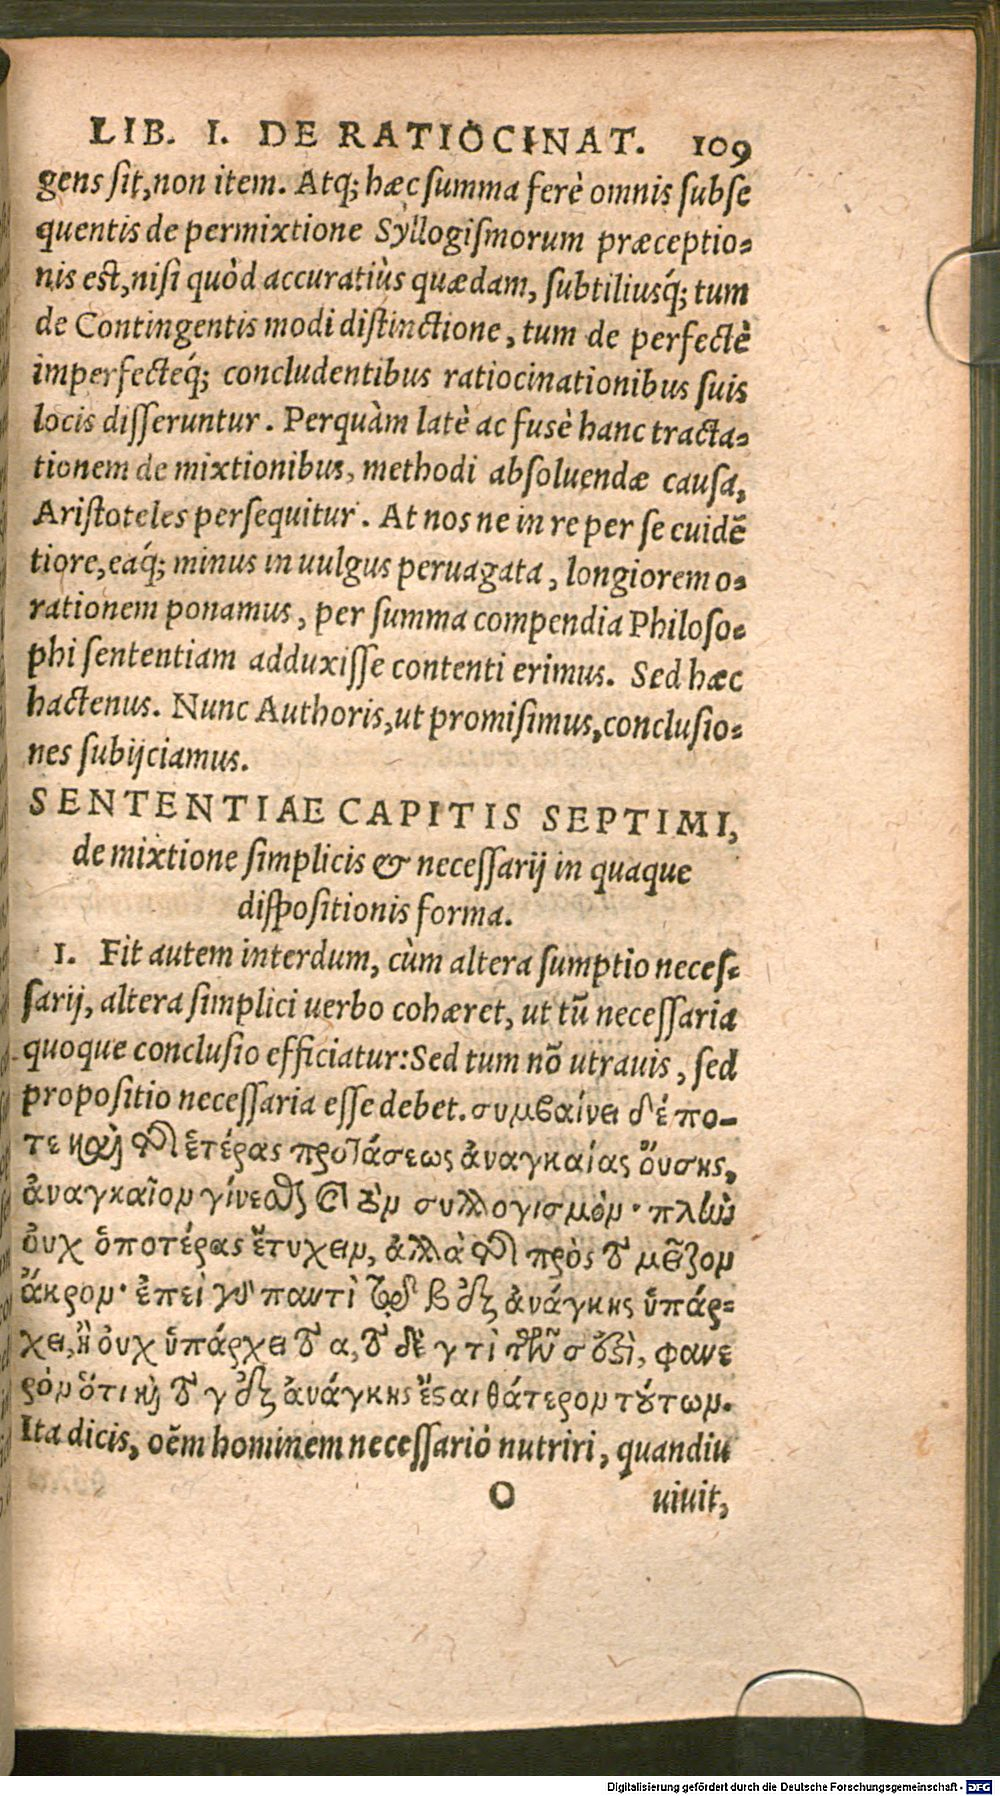 LIB. I. DE RATIOCINAT. 109
gens sit, non item. Atq; hæc summa ferè omnis subse
quentis de permixtione Syllogismorum præceptio-
nis est, nisi quòd accuratiùs quædam, subtiliusq́; tum
de Contingentis modi distinctione, tum de perfectè
imperfecteq́; concludentibus ratiocinationibus suis
locis disseruntur. Perquàm latè ac fusè hanc tracta-
tionem de mixtionibus, methodi absoluendæ causa,
Aristoteles persequitur. At nos ne in re per se euidē
tiore, eaq́; minus in uulgus peruagata, longiorem o-
rationem ponamus, per summa compendia Philoso-
phi sententiam adduxisse contenti erimus. Sed hæc
hactenus. Nunc Authoris, ut promisimus, conclusio-
nes subijciamus.
SENTENTIAE CAPITIS SEPTIMI,
de mixtione simplicis & necessarij in quaque
dispositionis forma.
1. Fit autem interdum, cùm altera sumptio neces-
sarij, altera simplici uerbo cohæret, ut tū necessaria
quoque conclusio efficiatur: Sed tum nō utrauis, sed
propositio necessaria esse debet. συμβαίνει δέ πο-
τε καὶ τῆς ἑτέρας προτάσεως ἀναγκαίας ὄυσης,
ἀναγκαῖον γίνεσθαι τὸν συλλογισμόν· πλὴν
ὀυχ ὁποτέρας ἔτυχεν, ἀλλὰ τῆς πρὸς τὸ μεῖζον
ἄκρον· ἐπεὶ γὰρ παντὶ τῷ β ἐξ ἀνάγκης ὑπάρ-
χει, ἢ ὀυχ ὑπάρχει τὸ α, τὸ δὲ γ τὶ τῶν β ἐστὶ, φανε
ρὸν ὅτι καὶ τὸ γ ἐξ ἀνάγκης ἔσαι θάτερον τούτων.
Ita dicis, oēm hominem necessariò nutriri, quandiu
O uiuit,
Digitalisierung gefördert durch die Deutsche Forschungsgemeinschaft - DFG